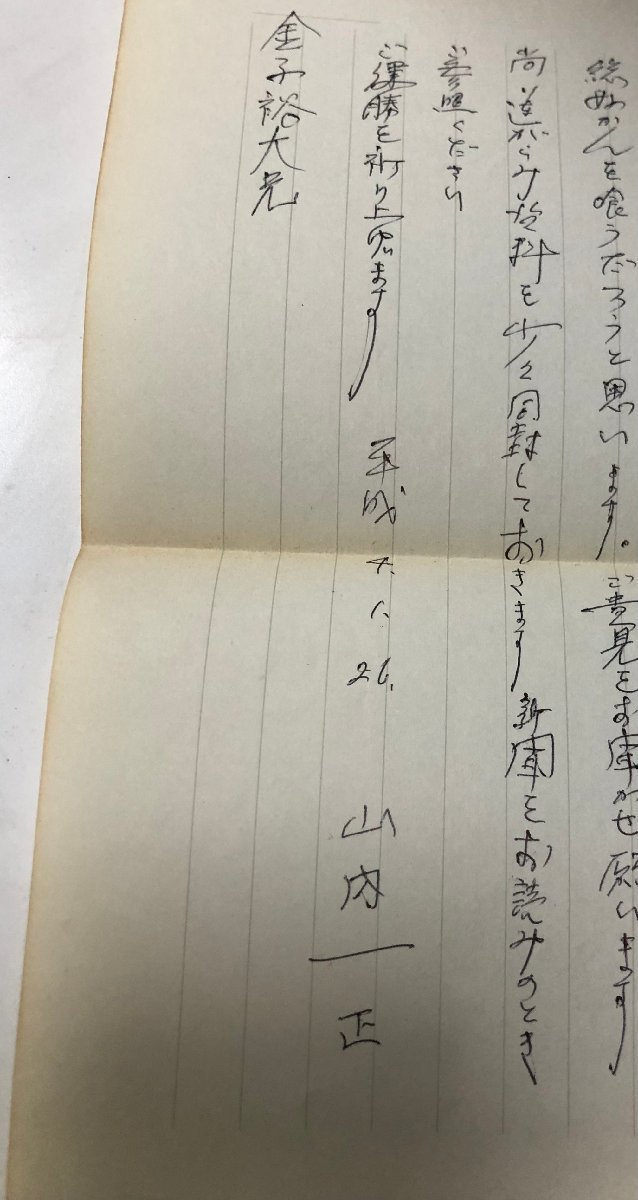 総好かんを喰うだろうと思います。ご貴見をお聞かせ願います
尚道がらみ資料を少々同封しておきます 新聞をお読みのとき
ご参照ください
ご健勝を祈り上げます 平成 7. 1. 26. 山内一正
金子裕大兄